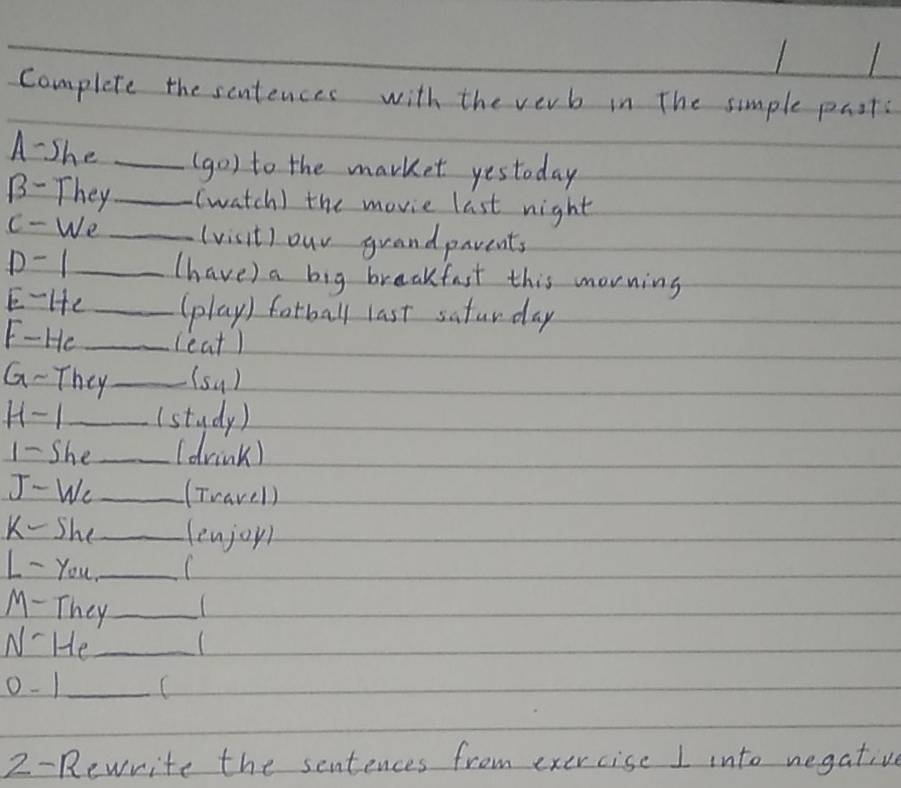 / /
Complete the sentences with the verb in The simple past:
A-She ____ (go) to the market yestoday
B-They ____ (watch) the movie last night
C-We ____ (visit) our grandparents
D-I ____ (have) a big breakfast this morning
E-He ____ (play) fotball last saturday
F-He ____ (eat)
G-They ____ (su)
H-I ____ (study)
I-She ____ (drink)
J-We ____ (Travel)
K-She ____ (enjoy)
L-You ____ (
M-They ____ (
N-He ____ (
O-I ____ (
2-Rewrite the sentences from exercise 1 into negative